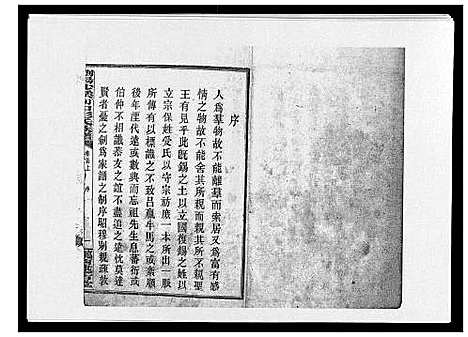 序
人爲羣物故不能離羣而索居又爲富有感
情之物故不能舍其所親而不親聖
王有見乎此既錫之土以立國復錫之姓以
立宗保姓受氏以守宗祊庶一本所出一脈
所傳有以標識之不致呂嬴牛馬之或紊顧
後年湮代遠或數典而忘祖先生息蕃衍或
伯仲不相識恭友之誼不盡追之是忱莫達
賢者憂之創爲家譜之制序昭穆別親疏敦